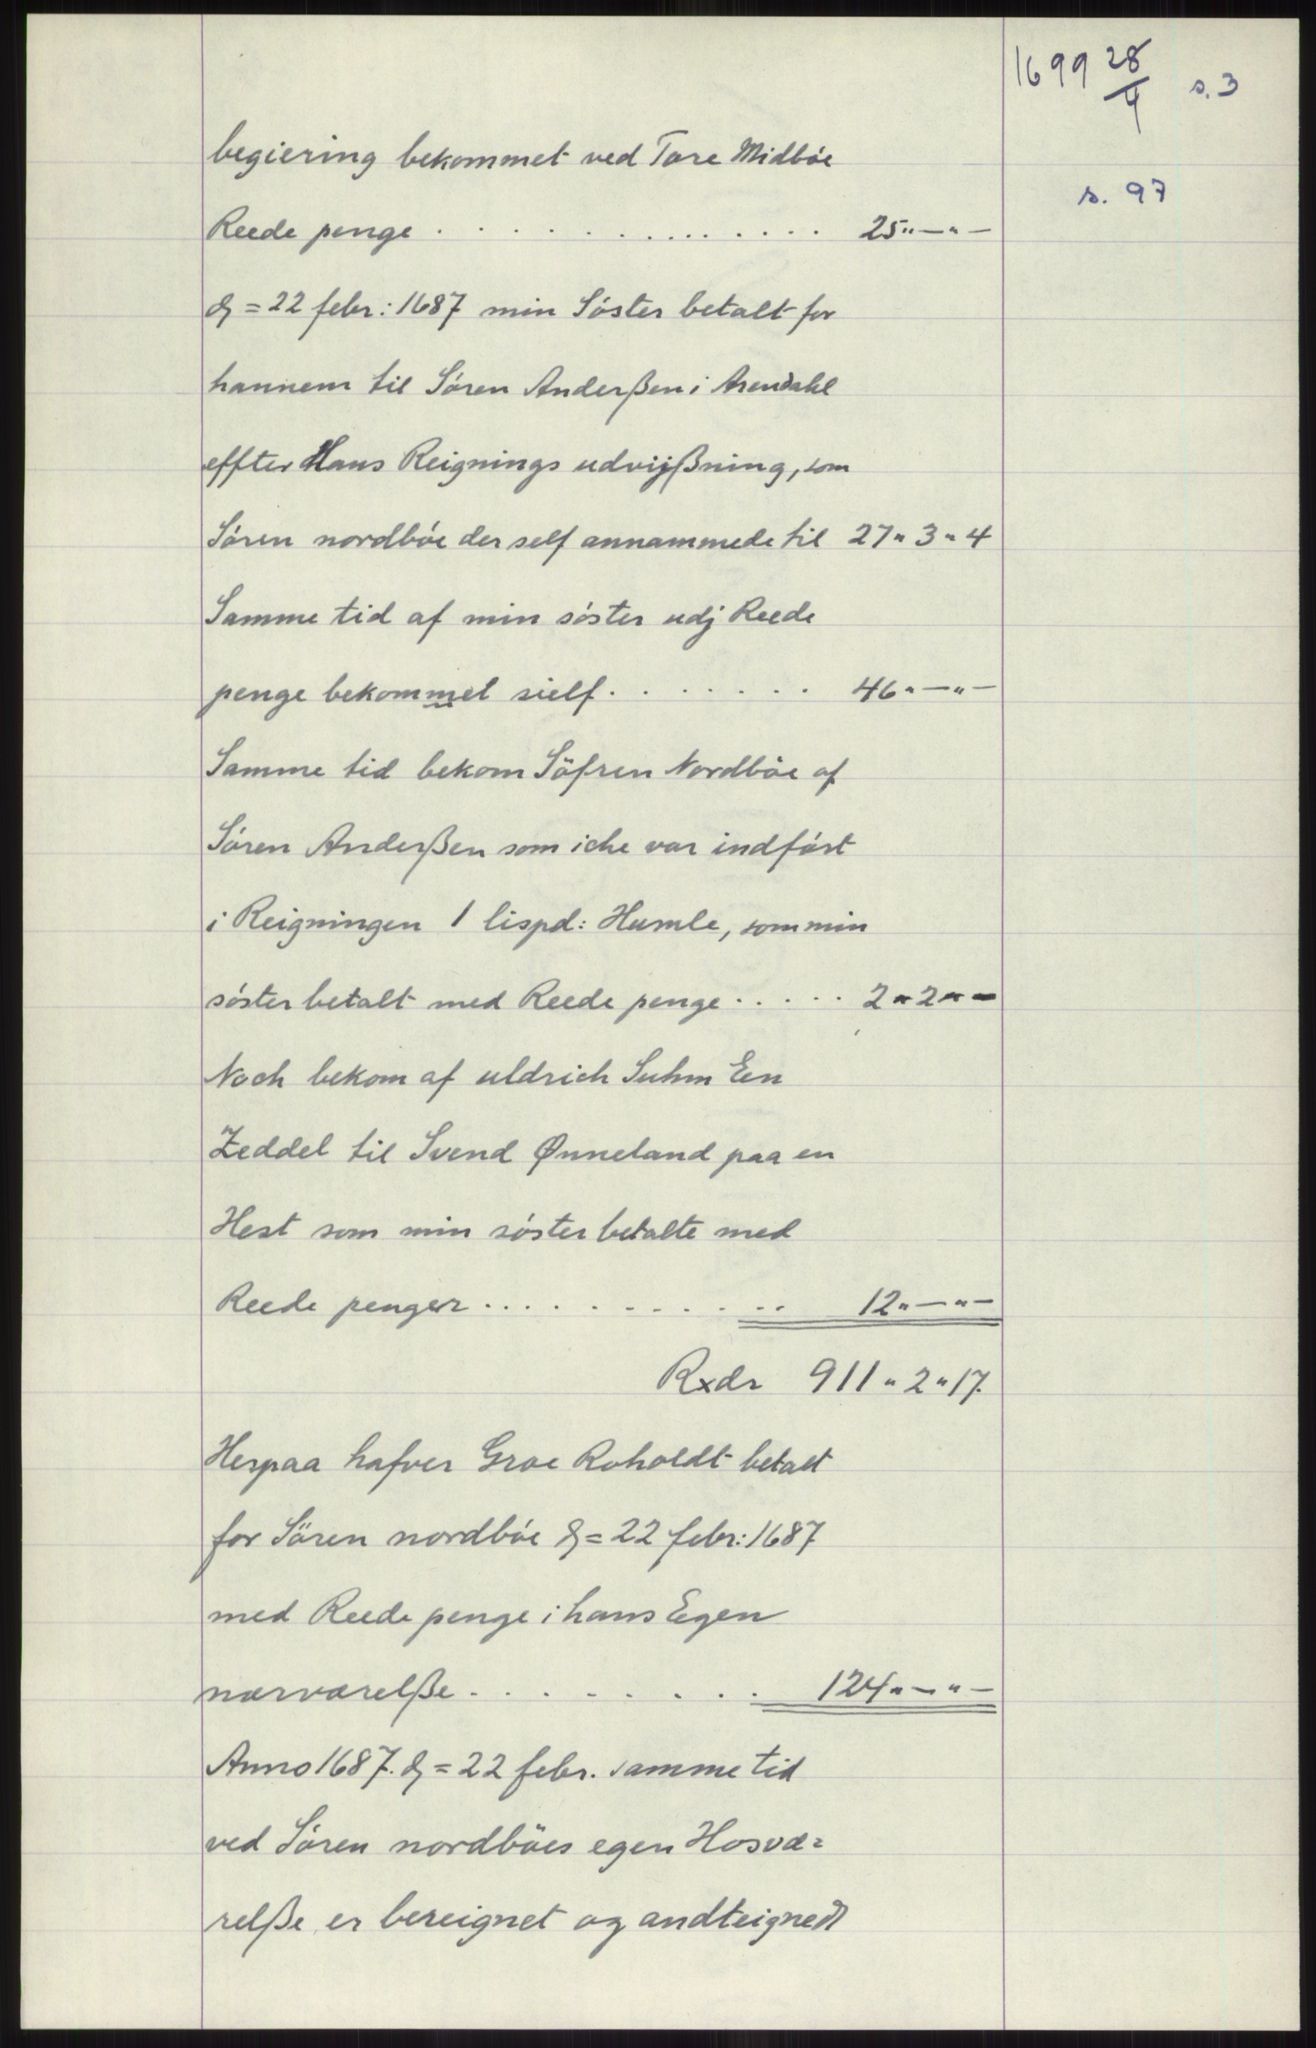 1699 28/4 s. 3
s. 97
begiering bekommet ved Tore Midbóe
Reede penge . . . . . . . . . . . . . . . 25"—"—
d = 22 febr: 1687 min Sóster betalt for
hannem til Sóren Anderßen i Arendahl
effter Hans Reignings udvijßning, som
Sóren nordbóe der self annammede til 27" 3" 4
Samme tid af min sóster udj Reede
penge bekommet sielf . . . . . . . 46"—"—
Samme tid bekom Söfren Nordbóe af
Sóren Anderßen som iche var indfórt
i Reigningen 1 lispd: Humle, som min
sóster betalt med Reede penge . . . . . 2" 2" —
Noch bekom af uldrich Suhm Een
Zeddel til Svend Ønneland paa en
Hest som min sóster betalte med
Reede penger . . . . . . . . . . . 12"—"—
Rxdr 911" 2" 17.
Herpaa hafver Groe Roholdt betalt
for Sören nordbóe d = 22 febr: 1687
med Reede penge i hans Egen
nærværelße . . . . . . . . . 124"—"—
Anno 1687. d = 22 febr. samme tid
ved Sóren nordböes egen Hosvæ=
relße er bereignet og andteignedt